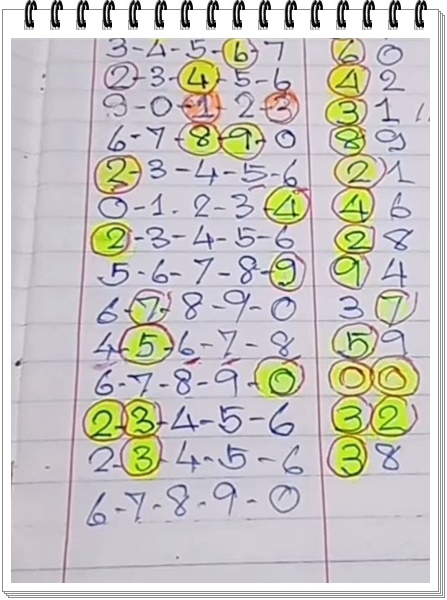 3-4-5-6-7 60
2-3-4-5-6 42
9-0-1-2-3 31
6-7-8-9-0 89
2-3-4-5-6 21
0-1-2-3-4 46
2-3-4-5-6 28
5-6-7-8-9 94
6-7-8-9-0 37
4-5-6-7-8 59
6-7-8-9-0 00
2-3-4-5-6 32
2-3-4-5-6 38
6-7-8-9-0